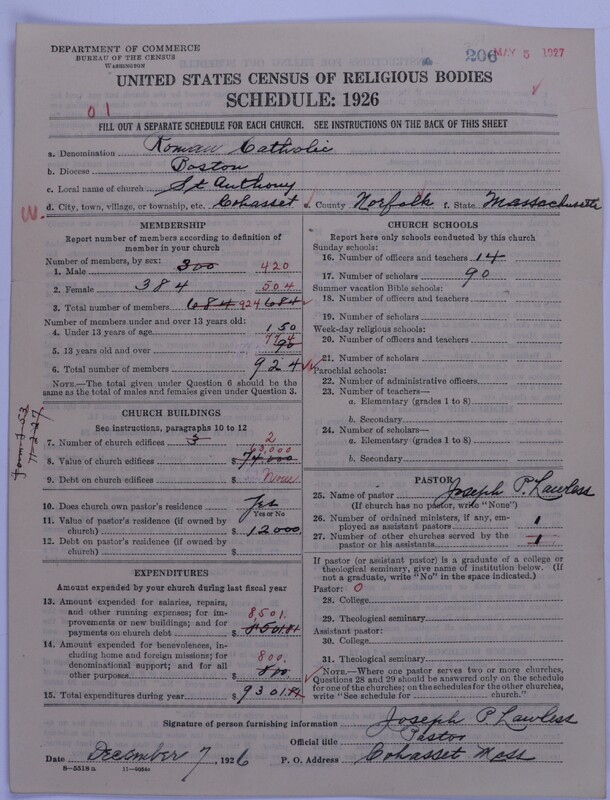 DEPARTMENT OF COMMERCE
BUREAU OF THE CENSUS
WASHINGTON
206 MAY 5 1927
UNITED STATES CENSUS OF RELIGIOUS BODIES
SCHEDULE: 1926
01
FILL OUT A SEPARATE SCHEDULE FOR EACH CHURCH. SEE INSTRUCTIONS ON THE BACK OF THIS SHEET
a. Denomination Roman Catholic
b. Diocese Boston
c. Local name of church St Anthony
W. d. City, town, village, or township, etc. Cohasset e. County Norfolk f. State Massachusetts
MEMBERSHIP
Report number of members according to definition of
member in your church
Number of members, by sex:
1. Male 300 420
2. Female 384 504
3. Total number of members 684 924 684
Number of members under and over 13 years old:
4. Under 13 years of age 150
5. 13 years old and over 774
6. Total number of members 924
NOTE.—The total given under Question 6 should be
the same as the total of males and females given under Question 3.
CHURCH BUILDINGS
See instructions, paragraphs 10 to 12
7. Number of church edifices 3 2
8. Value of church edifices $ 74,000 63,000
9. Debt on church edifices $ None
10. Does church own pastor's residence? Yes
Yes or No
11. Value of pastor's residence (if owned by
church) $ 12000
12. Debt on pastor's residence (if owned by
church) $
EXPENDITURES
Amount expended by your church during last fiscal year
13. Amount expended for salaries, repairs,
and other running expenses; for im-
provements or new buildings; and for
payments on church debt $ 8501.
14. Amount expended for benevolences, in-
cluding home and foreign missions; for
denominational support; and for all
other purposes $ 800 800.
15. Total expenditures during year $ 9301
CHURCH SCHOOLS
Report here only schools conducted by this church
Sunday schools:
16. Number of officers and teachers 14
17. Number of scholars 90
Summer vacation Bible schools:
18. Number of officers and teachers
19. Number of scholars
Week-day religious schools:
20. Number of officers and teachers
21. Number of scholars
Parochial schools:
22. Number of administrative officers
23. Number of teachers—
a. Elementary (grades 1 to 8)
b. Secondary
24. Number of scholars—
a. Elementary (grades 1 to 8)
b. Secondary
PASTOR
25. Name of pastor Joseph P. Lawless
(If church has no pastor, write "None")
26. Number of ordained ministers, if any, em-
ployed as assistant pastors 1
27. Number of other churches served by the
pastor or his assistants 1
If pastor (or assistant pastor) is a graduate of a college or
theological seminary, give name of institution below. (If
not a graduate, write "No" in the space indicated.)
Pastor: 0
28. College
29. Theological seminary
Assistant pastor:
30. College
31. Theological seminary
NOTE.—Where one pastor serves two or more churches,
Questions 28 and 29 should be answered only on the schedule
for one of the churches; on the schedules for the other churches,
write "See schedule for church."
Signature of person furnishing information Joseph P Lawless
Official title Pastor
Date December 7, 1926 P. O. Address Cohasset Mass
8-5518a 11-9054c